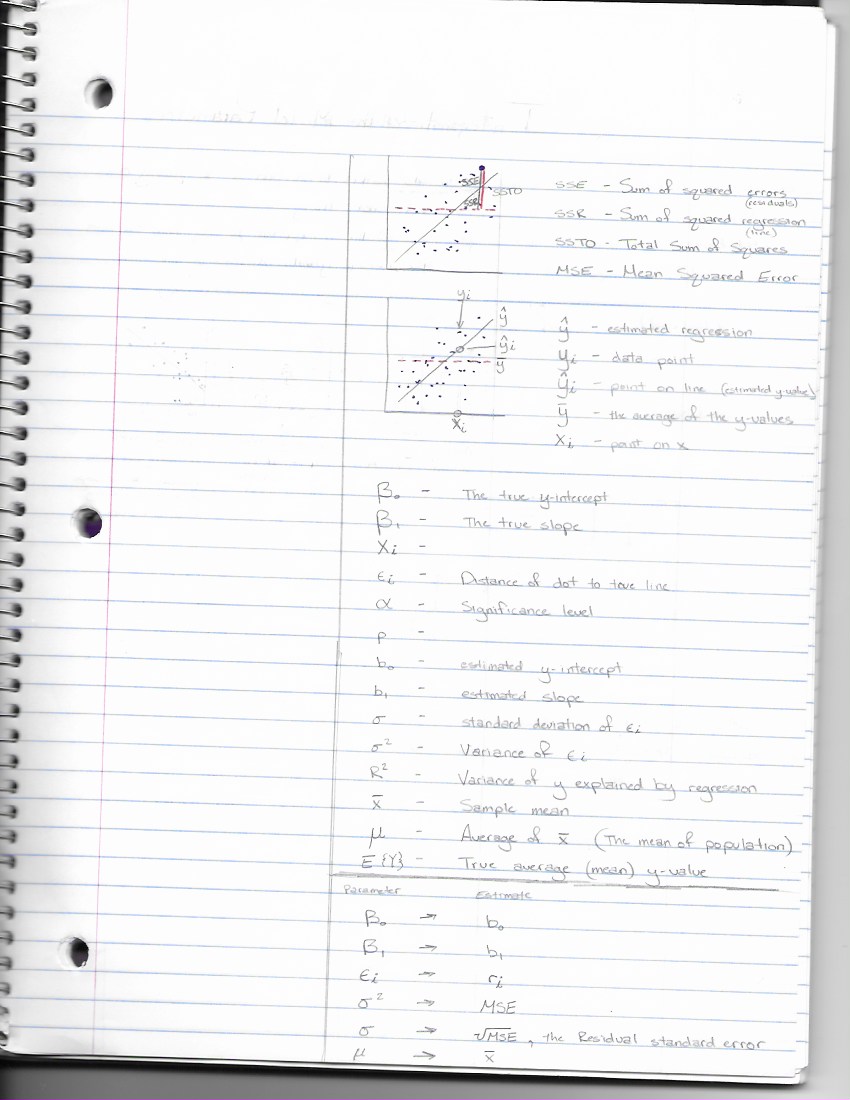 SSE
SSTO
SSR
SSE - Sum of squared errors
(residuals)
SSR - Sum of squared regression
(line)
SSTO - Total Sum of Squares
MSE - Mean Squared Error
yi
ŷ
ŷi
ȳ
Xi
ŷ - estimated regression
yi - data point
ŷi - point on line (estimated y-value)
ȳ - the average of the y-values
Xi - point on x
β₀ - The true y-intercept
β₁ - The true slope
Xi -
εi - Distance of dot to true line
α - Significance level
p -
b₀ - estimated y-intercept
b₁ - estimated slope
σ - standard deviation of εi
σ² - Variance of εi
R² - Variance of y explained by regression
x̄ - Sample mean
μ - Average of x̄ (The mean of population)
E{Y} - True average (mean) y-value
Parameter Estimate
β₀ → b₀
β₁ → b₁
εi → ri
σ² → MSE
σ → √MSE, the Residual standard error
μ → x̄